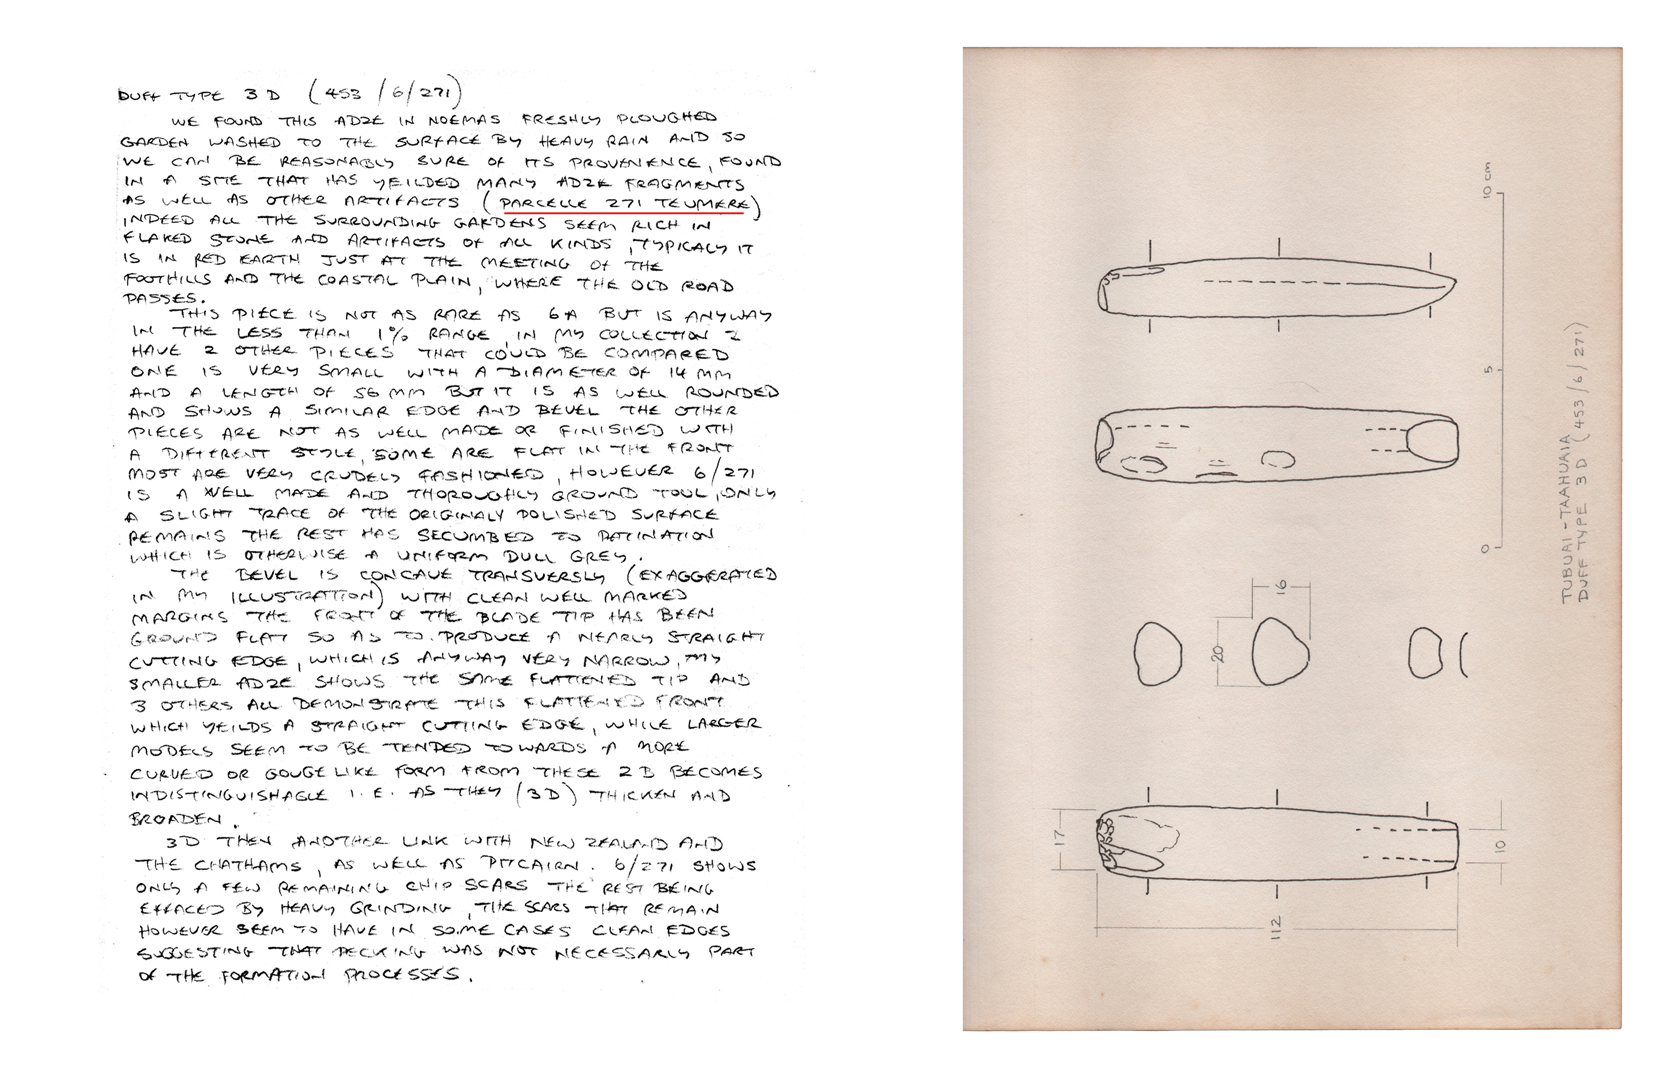 DUFF TYPE 3D (453/6/271)
WE FOUND THIS ADZE IN NOEMAS FRESHLY PLOUGHED
GARDEN WASHED TO THE SURFACE BY HEAVY RAIN AND SO
WE CAN BE REASONABLY SURE OF ITS PROVENIENCE, FOUND
IN A SITE THAT HAS YEILDED MANY ADZE FRAGMENTS
AS WELL AS OTHER ARTIFACTS (PARCELLE 271 TEUMERE)
INDEED ALL THE SURROUNDING GARDENS SEEM RICH IN
FLAKED STONE AND ARTIFACTS OF ALL KINDS, TYPICALY IT
IS IN RED EARTH JUST AT THE MEETING OF THE
FOOTHILLS AND THE COASTAL PLAIN, WHERE THE OLD ROAD
PASSES.
THIS PIECE IS NOT AS RARE AS 6A BUT IS ANYWAY
IN THE LESS THAN 1% RANGE, IN MY COLLECTION I
HAVE 2 OTHER PIECES THAT COULD BE COMPARED
ONE IS VERY SMALL WITH A DIAMETER OF 14 MM
AND A LENGTH OF 56 MM BUT IT IS AS WELL ROUNDED
AND SHOWS A SIMILAR EDGE AND BEVEL THE OTHER
PIECES ARE NOT AS WELL MADE OR FINISHED WITH
A DIFFERENT STYLE, SOME ARE FLAT IN THE FRONT
MOST ARE VERY CRUDELY FASHIONED, HOWEVER 6/271
IS A WELL MADE AND THOROUGHLY GROUND TOOL, ONLY
A SLIGHT TRACE OF THE ORIGINALY POLISHED SURFACE
REMAINS THE REST HAS SECUMBED TO PATINATION
WHICH IS OTHERWISE A UNIFORM DULL GREY.
THE BEVEL IS CONCAVE TRANSVERSLY (EXAGGERATED
IN MY ILLUSTRATION) WITH CLEAN WELL MARKED
MARGINS THE FRONT OF THE BLADE TIP HAS BEEN
GROUND FLAT SO AS TO PRODUCE A NEARLY STRAIGHT
CUTTING EDGE, WHICH IS ANYWAY VERY NARROW, MY
SMALLER ADZE SHOWS THE SAME FLATTENED TIP AND
3 OTHERS ALL DEMONSTRATE THIS FLATTENED FRONT
WHICH YEILDS A STRAIGHT CUTTING EDGE, WHILE LARGER
MODELS SEEM TO BE TENDED TOWARDS A MORE
CURVED OR GOUGE LIKE FORM FROM THESE 2B BECOMES
INDISTINGUISHAGLE I.E. AS THEY (3D) THICKEN AND
BROADEN.
3D THEN ANOTHER LINK WITH NEW ZEALAND AND
THE CHATHAMS, AS WELL AS PITCAIRN. 6/271 SHOWS
ONLY A FEW REMAINING CHIP SCARS THE REST BEING
EFFACED BY HEAVY GRINDING, THE SCARS THAT REMAIN
HOWEVER SEEM TO HAVE IN SOME CASES CLEAN EDGES
SUGGESTING THAT PECKING WAS NOT NECESSARLY PART
OF THE FORMATION PROCESSES.
10 cm
5
0
TUBUAI - TAAHUAIA
DUFF TYPE 3D (453/6/271)
16
20
17
10
112